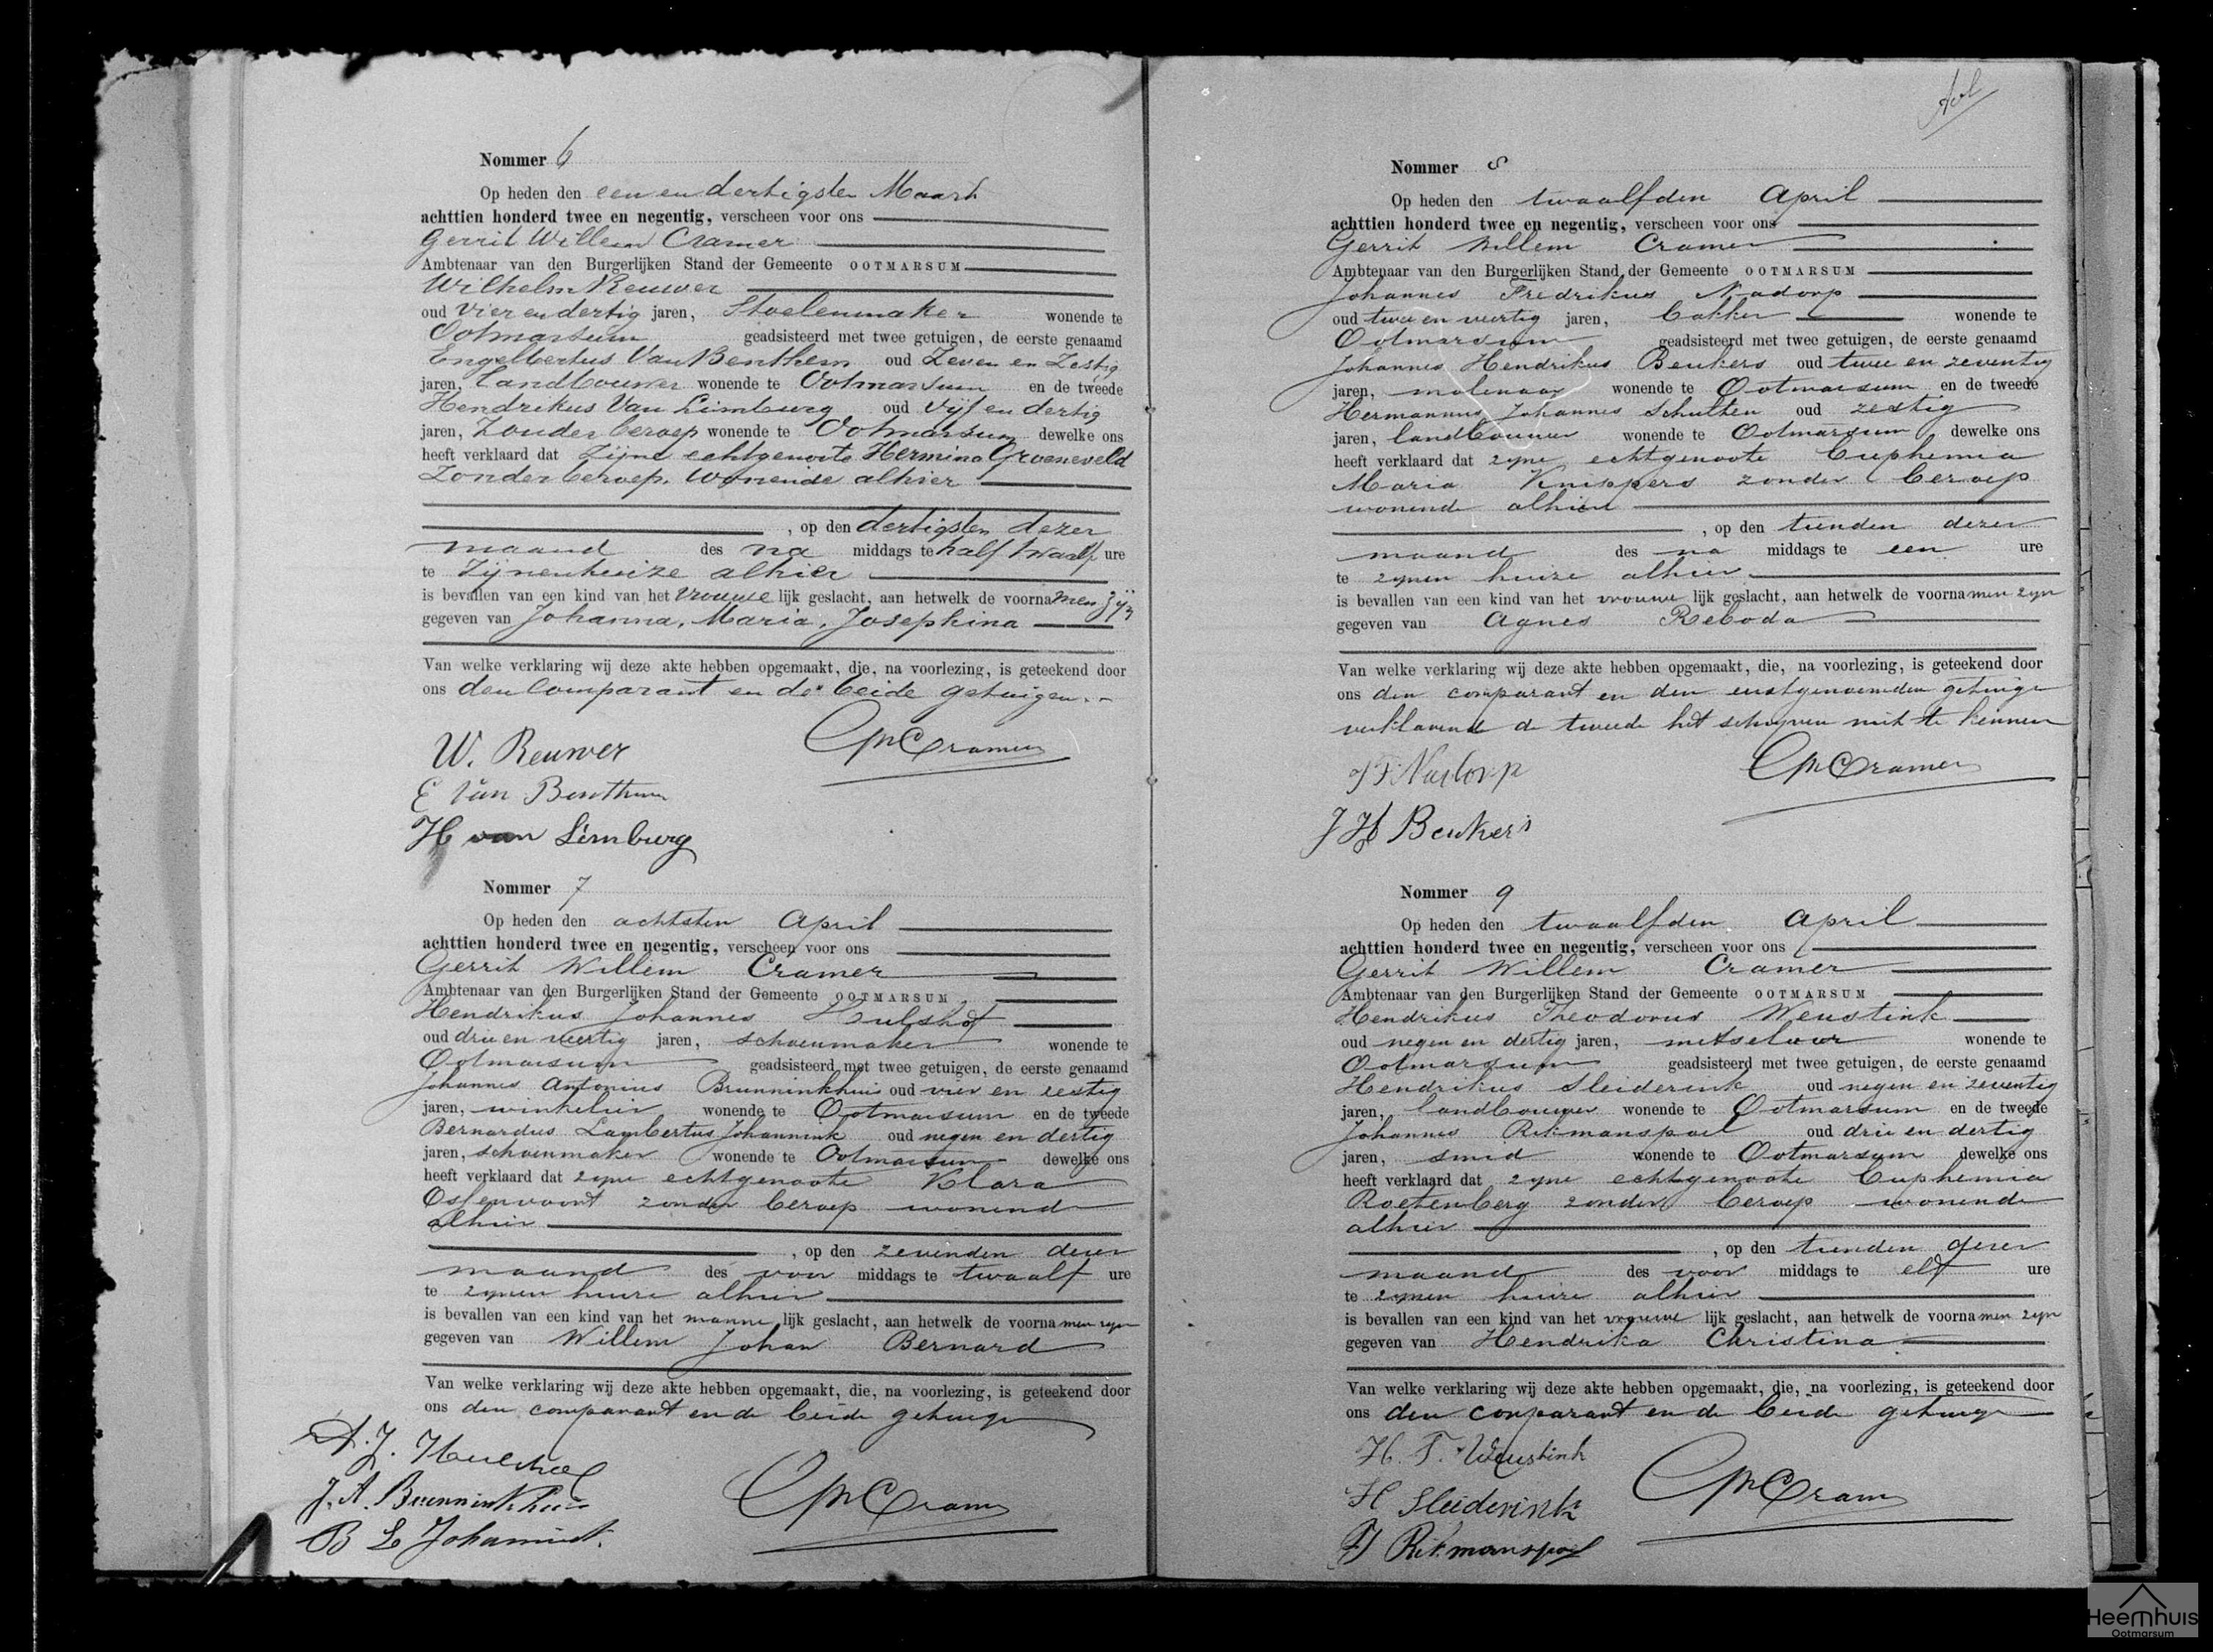 Nommer 6
Op heden den een en dertigsten Maart
achttien honderd twee en negentig, verscheen voor ons
Gerrit Willem Cramer
Ambtenaar van den Burgerlijken Stand der Gemeente OOTMARSUM
Wilhelm Reuwer
oud vier en dertig jaren, Stoelenmaker wonende te
Ootmarsum geadsisteerd met twee getuigen, de eerste genaamd
Engelbertus Van Benthem oud Zeven en Zestig
jaren, landbouwer wonende te Ootmarsum en de tweede
Hendrikus Van Limburg oud Vijf en dertig
jaren, Zonder beroep wonende te Ootmarsum dewelke ons
heeft verklaard dat Zijne echtgenoote Hermina Groeneveld
Zonder beroep, wonende alhier
, op den dertigsten dezer
maand des na middags te half twaalf ure
te Zijnenhuize alhier
is bevallen van een kind van het vrouwe lijk geslacht, aan hetwelk de voornamen zijn
gegeven van Johanna, Maria, Josephina
Van welke verklaring wij deze akte hebben opgemaakt, die, na voorlezing, is geteekend door
ons den Comparant en de beide getuigen.
W. Reuwer GWCramer
E Van Benthem
H van Limburg
Nommer 7
Op heden den achtsten April
achttien honderd twee en negentig, verscheen voor ons
Gerrit Willem Cramer
Ambtenaar van den Burgerlijken Stand der Gemeente OOTMARSUM
Hendrikus Johannes Hulshof
oud drie en veertig jaren, schoenmaker wonende te
Ootmarsum geadsisteerd met twee getuigen, de eerste genaamd
Johannes Antonius Brunninkhuis oud vier en zestig
jaren, winkelier wonende te Ootmarsum en de tweede
Bernardus Lambertus Johannink oud negen en dertig
jaren, schoenmaker wonende te Ootmarsum dewelke ons
heeft verklaard dat zyne echtgenoote Klara
Ossenvoort zonder beroep wonende
alhier
, op den zevenden dezer
maand des voor middags te twaalf ure
te zynen huize alhier
is bevallen van een kind van het manne lijk geslacht, aan hetwelk de voornamen zyn
gegeven van Willem Johan Bernard
Van welke verklaring wij deze akte hebben opgemaakt, die, na voorlezing, is geteekend door
ons den comparant en de beide getuigen
J. A. Brunninkhuis GWCramer
B L Johannink.
Nommer 8
Op heden den twaalfden April
achttien honderd twee en negentig, verscheen voor ons
Gerrit Willem Cramer
Ambtenaar van den Burgerlijken Stand der Gemeente OOTMARSUM
Johannes Fredrikus Nadorp
oud twee en veertig jaren, bakker wonende te
Ootmarsum geadsisteerd met twee getuigen, de eerste genaamd
Johannes Hendrikus Beukers oud twee en zeventig
jaren, molenaar wonende te Ootmarsum en de tweede
Hermannus Johannes Schulten oud zestig
jaren, landbouwer wonende te Ootmarsum dewelke ons
heeft verklaard dat zyne echtgenoote Euphemia
Maria Knippers zonder beroep
wonende alhier
, op den tienden dezer
maand des na middags te een ure
te zynen huize alhier
is bevallen van een kind van het vrouwe lijk geslacht, aan hetwelk de voornamen zyn
gegeven van Agnes Reboda
Van welke verklaring wij deze akte hebben opgemaakt, die, na voorlezing, is geteekend door
ons den comparant en den eerstgenoemden getuige
verklarende de tweede het schryven niet te kennen
J F Nadorp GWCramer
J H Beukers
Nommer 9
Op heden den twaalfden April
achttien honderd twee en negentig, verscheen voor ons
Gerrit Willem Cramer
Ambtenaar van den Burgerlijken Stand der Gemeente OOTMARSUM
Hendrikus Theodorus Weustink
oud negen en dertig jaren, metselaar wonende te
Ootmarsum geadsisteerd met twee getuigen, de eerste genaamd
Hendrikus Sleiderink oud negen en zeventig
jaren, landbouwer wonende te Ootmarsum en de tweede
Johannes Rikmanspoel oud drie en dertig
jaren, smid wonende te Ootmarsum dewelke ons
heeft verklaard dat zyne echtgenoote Euphemia
Roetenberg zonder beroep wonende
alhier
, op den tienden dezer
maand des voor middags te elf ure
te zynen huize alhier
is bevallen van een kind van het vrouwe lijk geslacht, aan hetwelk de voornamen zyn
gegeven van Hendrika Christina
Van welke verklaring wij deze akte hebben opgemaakt, die, na voorlezing, is geteekend door
ons den comparant en de beide getuigen
H. T. Weustink GWCramer
H Sleiderink
J Rikmanspoel
Heemhuis
Ootmarsum